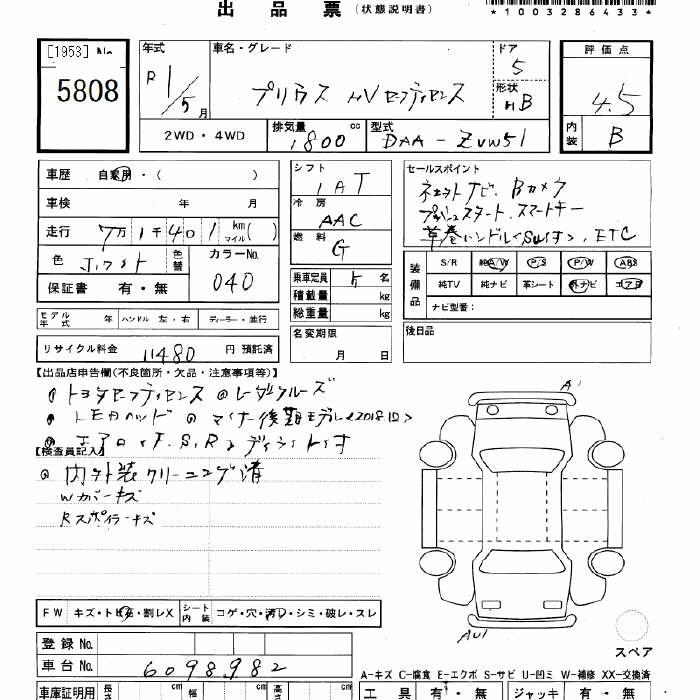 出品票 (状態説明書)
*1003286433*
[1953] No.
5808
年式 R 1/5 月
車名・グレード プリウス HV セーフティセンス
ドア 5
形状 HB
評価点 4.5
内装 B
2WD・4WD
排気量 1800 cc
型式 DAA-ZVW51
車歴 自家用・( )
車検 年 月
走行 7万1千401 km マイル( )
色 Jワイト 色替 カラーNo. 040
保証書 有・無
シフト IAT
冷房 AAC
燃料 G
乗車定員 5 名
積載量 kg
総重量 kg
名変期限
月 日
セールスポイント
ネオットナビ. Bカメラ
プッシュスタート. スマートキー
革巻ハンドル<SW付>, ETC
装備品
S/R 純A/W P/S P/W ABS
純TV 純ナビ 革シート 外ナビ エアB
ナビ型番:
モデル年式 年 ハンドル 左・右 ディーラー・並行
後日品
リサイクル料金 11480 円 預託済
【出品店申告欄(不良箇所・欠品・注意事項等)】
トヨタセーフティセンス レーダクルーズ
LEDヘッド マイナー後期モデル<2018.12>
エアロ<F.S.R> ディライト付
【検査員記入】
内外装クリーニング済
Wカバーキズ
Rスポイラーキズ
A1
AU1
FW キズ・トビ石・割レX シート内装 コゲ・穴・済D・シミ・破レ・スレ
スペア
登録No.
車台No. 6098982
A-キズ C-腐食 E-エクボ S-サビ U-凹ミ W-補修 XX-交換済
車庫証明用 長さ cm 幅 cm 高さ cm
工具 有・無 ジャッキ 有・無